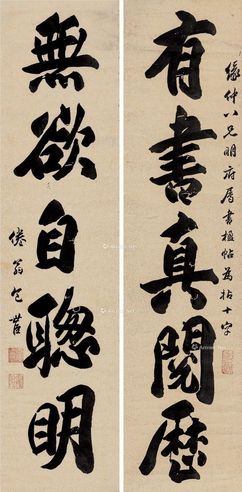 緣仲八兄明府屬書楹帖為拈十字
有書真閱歷
無欲自聰明
倦翁包世臣